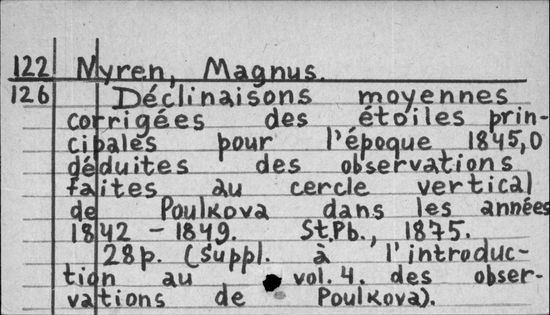 122 Nyren, Magnus.
126 Déclinaisons moyennes
corrigées des étoiles prin-
cipales pour l'époque 1845,0
déduites des observations
faites au cercle vertical
de Poulkova dans les années
1842 - 1849. St.Pb., 1875.
28p. (Suppl. à l'introduc-
tion au vol. 4. des obser-
vations de Poulkova).